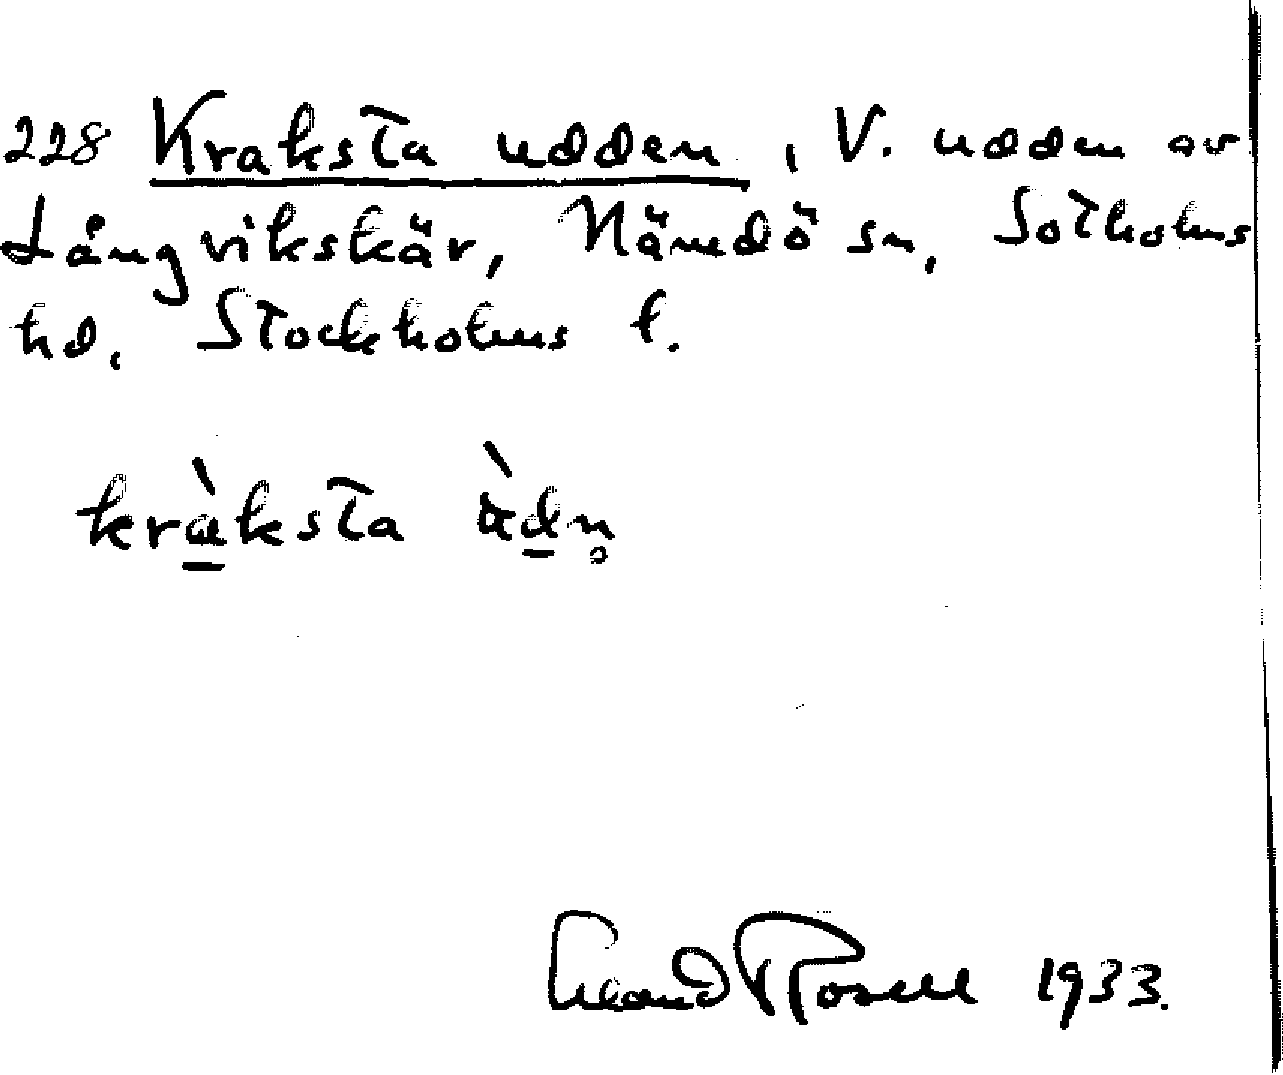 228 Kraksta udden, V. udden av
Långvikskär, Nämdö sn, Sotholms
hd, Stockholms l.
kràksta ùdn̥
Rosell 1933.